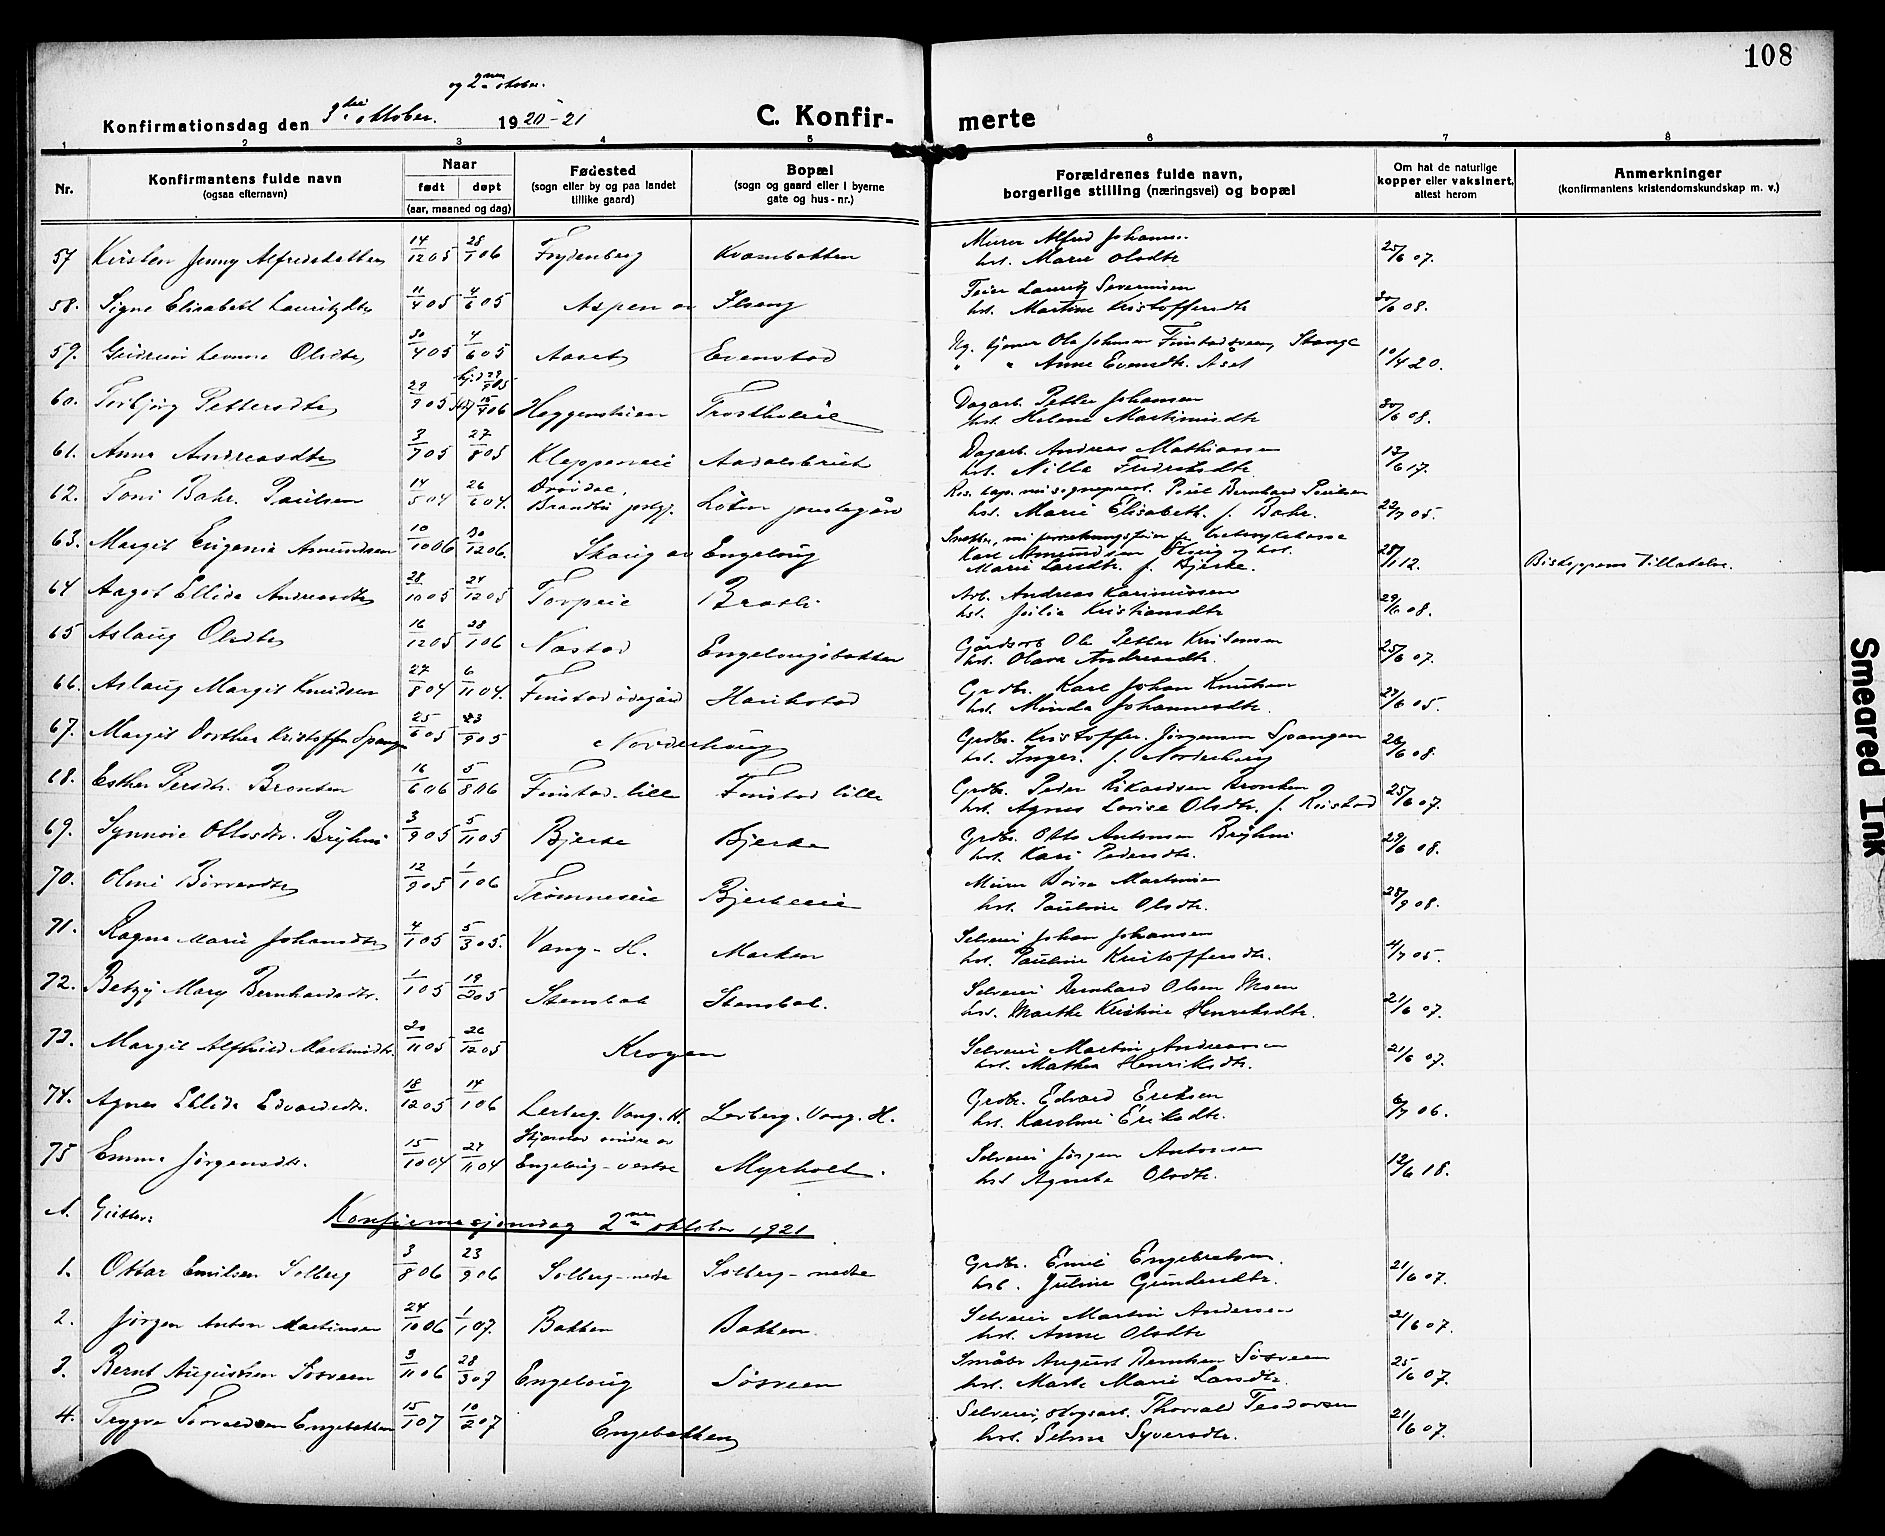 108
og 2nen oktober.
Konfirmationsdag den 3die oktober. 1920-21
C. Konfirmerte
1 2 3 4 5 6 7 8
Nr. Konfirmantens fulde navn (ogsaa efternavn) Naar født døpt (aar, maaned og dag) Fødested (sogn eller by og paa landet tillike gaard) Bopæl (sogn og gaard eller i byerne gate og hus-nr.) Forældrenes fulde navn, borgerlige stilling (næringsvei) og bopæl Om hat de naturlige kopper eller vaksinert, attest herom Anmerkninger (konfirmantens kristendomskundskap m. v.)
57 Kirsten Jenny Alfredsdatter 14/12 05 28/1 06 Frydenberg Kvambakken Murer Alfred Johansen hst. Marie Olsdtr 25/6 07.
58. Signe Elisabeth Lauritzdtr 11/4 05 4/6 05 Aspen av Ilseng Feier Lauritz Severinsen hst. Martine Kristoffersdtr 30/6 08.
59. Olsdtr 30/4 05 4/6 05 Aaset Evenstad Ug. tjener Ola Johnsen Finstadsveen, Stange " " Anne Evensdtr. Åset 10/4 20.
60. Torbjørg Pettersdtr 29/9 05 Heggenshuen Trosthuleie Dagarb. Petter Johansen hst. Helene Martinusdtr 30/6 08.
61. Anna Andreasdtr 3/7 05 27/8 05 Kleppeneie Aadalsbruk Dagarb. Andreas Mathiassen hst. Nille 17/6 17.
62. Toni Bahr. Paulsen 14/5 04 26/6 04. Brandbu prstgj. Løten prestegård Res. kap. nu sogneprest. Paul Bernhard Paulsen hst. Marie Elisabeth f. Bahr. 22/7 05.
63. Margit Eugenie Asmundsen 10/10 06 30/12 06. Skaug av Engelaug Karl Asmundsen Skaug og hst. Marie Larsdtr. f. Bjerke. 28/1 12. Biskoppens Tillatelse.
64 Aagot Ellida Andreasdtr 28/10 05 24/12 05 Torpeie Arb. Andreas Karinussen hst. Julie Kristiansdtr 29/6 08.
65 Aslaug Olsdtr 16/12 05 28/1 06 Næstad Engelaugsbakken Gårdsarb Ole Petter Kristensen hst. Olava Andreasdtr. 25/6 07.
66. Aslaug Margit Knudsen 27/8 04 6/11 04. Finstad ødegård Harikstad Grdbr. Karl Johan Knutsen hst. Minda Johannesdtr. 27/6 05.
67. Margit Dorthea Kristoffersen Spangen 25/6 05 23/9 05 Norderhaug Grdbr. Kristoffer Jørgensen Spangen hst. Inger f. Norderhaug 26/6 08.
68. Esther Persdtr. Bronken 16/6 06 5/8 06 Finstad-lille Finstad lille Grdbr. Peder Rikardsen Bronken hst. Agnes Lovise Olsdtr. f. 25/6 07.
69. Synnøve Ottosdtr. Bryhni 3/9 05 5/11 05 Bjerke Bjerke Grdbr. Otto Antonsen Bryhni hst. Kari Pedersdtr. 29/6 08.
70. Olmi Børresdtr 12/9 05 1/1 06 Trømneseie Bjerkeeie Murer Børre Martinsen hst. Pauline Olsdtr. 28/9 08.
71. Ragna Marie Johansdtr 4/1 05 5/3 05. Vang-H. Marken Selveier Johan Johansen hst. Pauline Kristoffersdtr. 4/7 05.
72. Betzy Mary Bernhardsdtr. 1/1 05 19/2 05 Stensbak Stensbak. Selveier Bernhard Olsen Moen hst. Marthe Kristine Henriksdtr. 21/6 07.
73. Margit Alfhild Martinsdtr. 20/11 05 26/12 05 Krogen Selveier Martin Andreassen hst. Mathea Henriksdtr. 21/6 07.
74. Agnes Ellida Edvardsdtr. 18/12 05 14/1 06 Lerberg. Vang. H. Lerberg. Vang. H. Grdbr. Edvard Eriksen hst. Karoline Eriksdtr. 6/7 06.
75 Emma Jørgensdtr. 15/10 04 27/11 04 Engelaug-vestre Myrholt. Selveier Jørgen Antonsen hst Agnethe Olsdtr. 12/6 18.
A. Gutter: Konfirmasjonsdag 2nen oktober 1921
1. Ottar Emilsen Solberg 3/8 06 23/9 06 Solberg-nedre Solberg-nedre Grdbr. Emil Engebretsen. hst. Juline Gundersdtr. 21/6 07.
2. Jørgen Anton Martinsen 24/10 06 1/1 07. Bakken Bakken. Selveier Martin Andersen hst. Anne Olsdtr 21/6 07.
3. Bernt Augustsen Sosveen 3/11 06 28/3 07 Engelaug Sosveen Småbr August Berntsen Sosveen hst. Marte Marie Larsdtr. 25/6 07.
4. Trygve Torvaldsen Engebakken 15/1 07 10/2 07 Engebakken Selveier, skogsarb. Thorvald Teodorsen hst. Selma Syversdtr. 21/6 07.
Smeared Ink